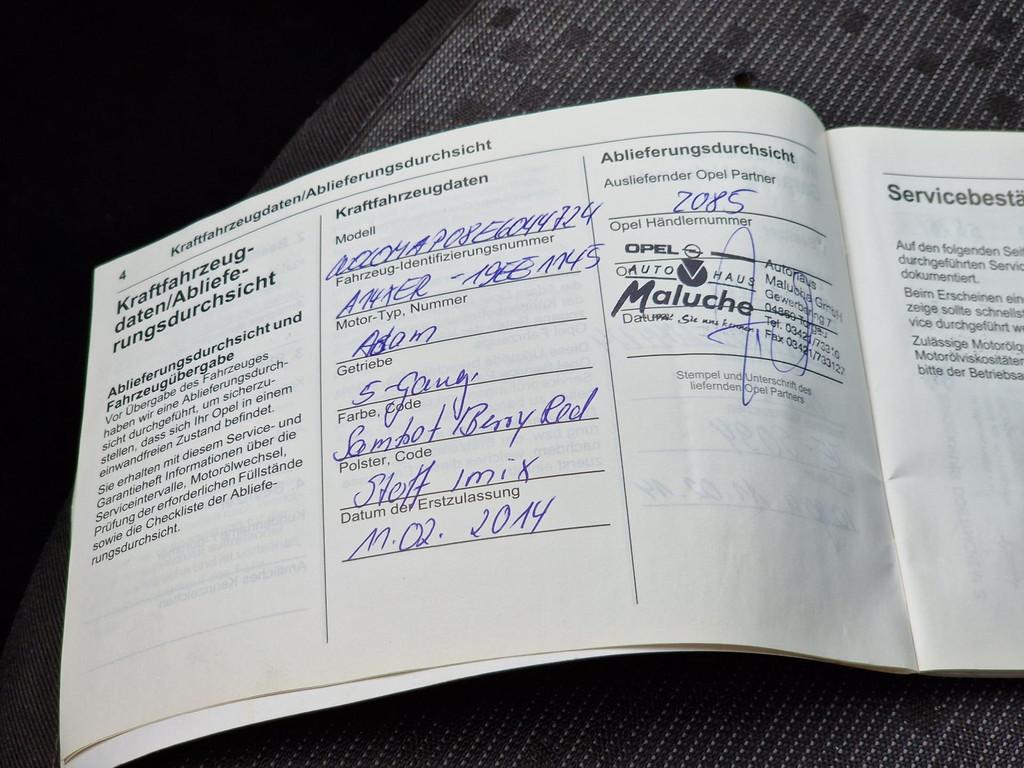 4 Kraftfahrzeugdaten/Ablieferungsdurchsicht
Kraftfahrzeug-
daten/Abliefe-
rungsdurchsicht
Ablieferungsdurchsicht und
Fahrzeugübergabe
Vor Übergabe des Fahrzeuges
haben wir eine Ablieferungsdurch-
sicht durchgeführt, um sicherzu-
stellen, dass sich Ihr Opel in einem
einwandfreien Zustand befindet.
Sie erhalten mit diesem Service- und
Garantieheft Informationen über die
Serviceintervalle, Motorölwechsel,
Prüfung der erforderlichen Füllstände
sowie die Checkliste der Abliefe-
rungsdurchsicht.
Kraftfahrzeugdaten
Modell
Fahrzeug-Identifizierungsnummer
A14XER - 19EE1145
Motor-Typ, Nummer
Adam
Getriebe
5-Gang
Farbe, Code
Berry Red
Polster, Code
Stoff
Datum der Erstzulassung
11.02. 2014
Ablieferungsdurchsicht
Ausliefernder Opel Partner
2085
Opel Händlernummer
OPEL
AUTOHAUS
Maluche
Autohaus
GmbH
Gewerbering 7
Datum
Stempel und Unterschrift des
liefernden Opel Partners
Servicebestä
Auf den folgenden Seit
durchgeführten Servic
dokumentiert.
Beim Erscheinen ein
zeige sollte schnells
vice durchgeführt w
Zulässige Motoröl
Motorölviskositäten
bitte der Betriebsa